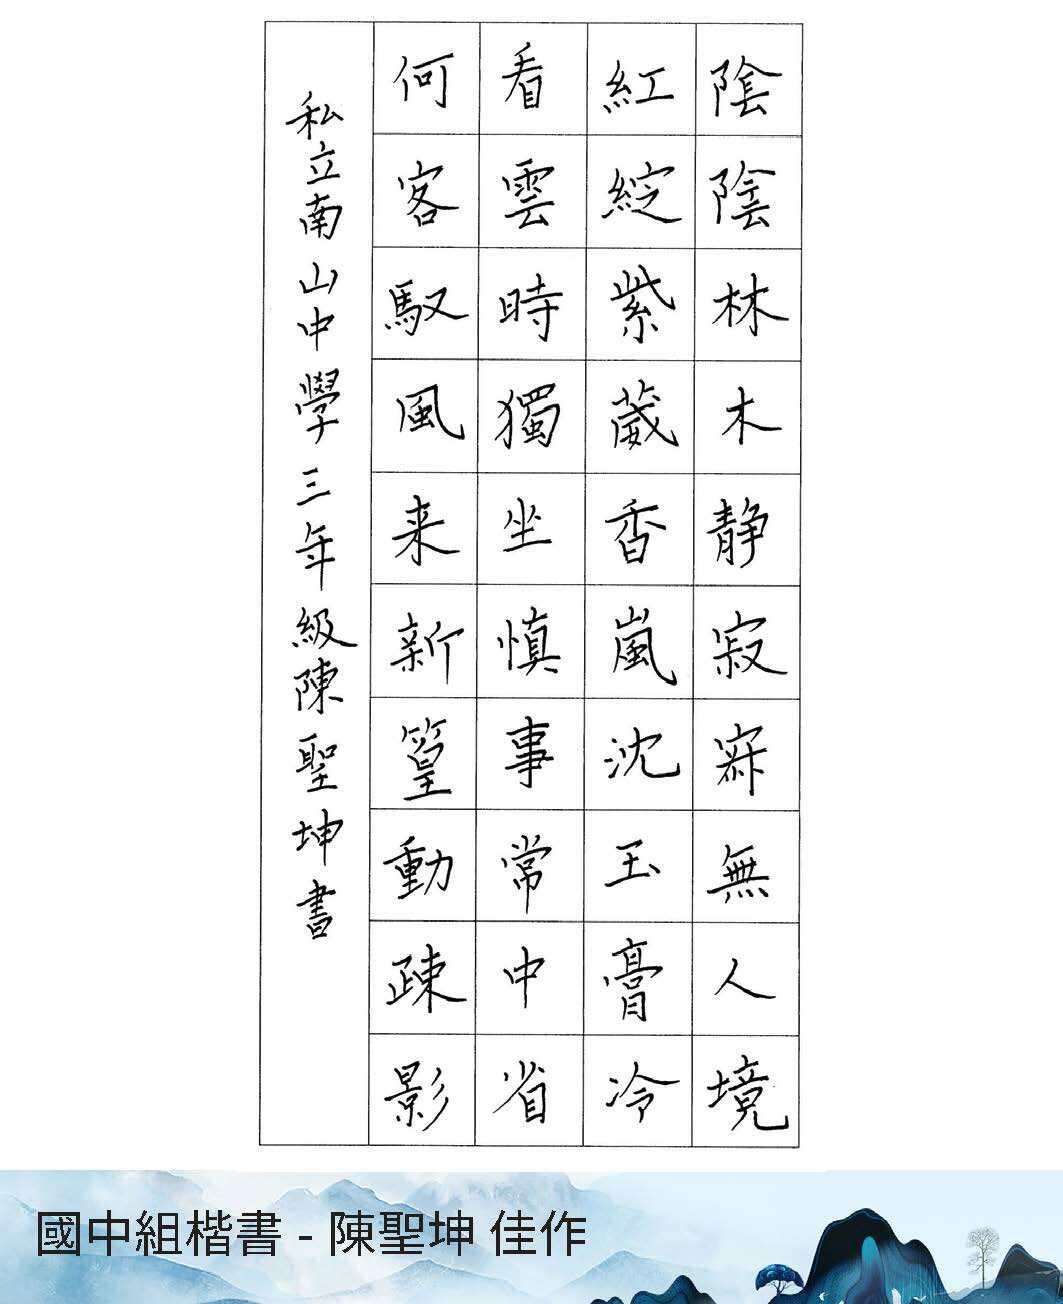 陰陰林木静寂寂無人境
紅綻紫葳香嵐沈玉膏冷
看雲時獨坐慎事常中省
何客馭風来新篁動疎影
私立南山中學三年級陳聖坤書
國中組楷書 - 陳聖坤 佳作